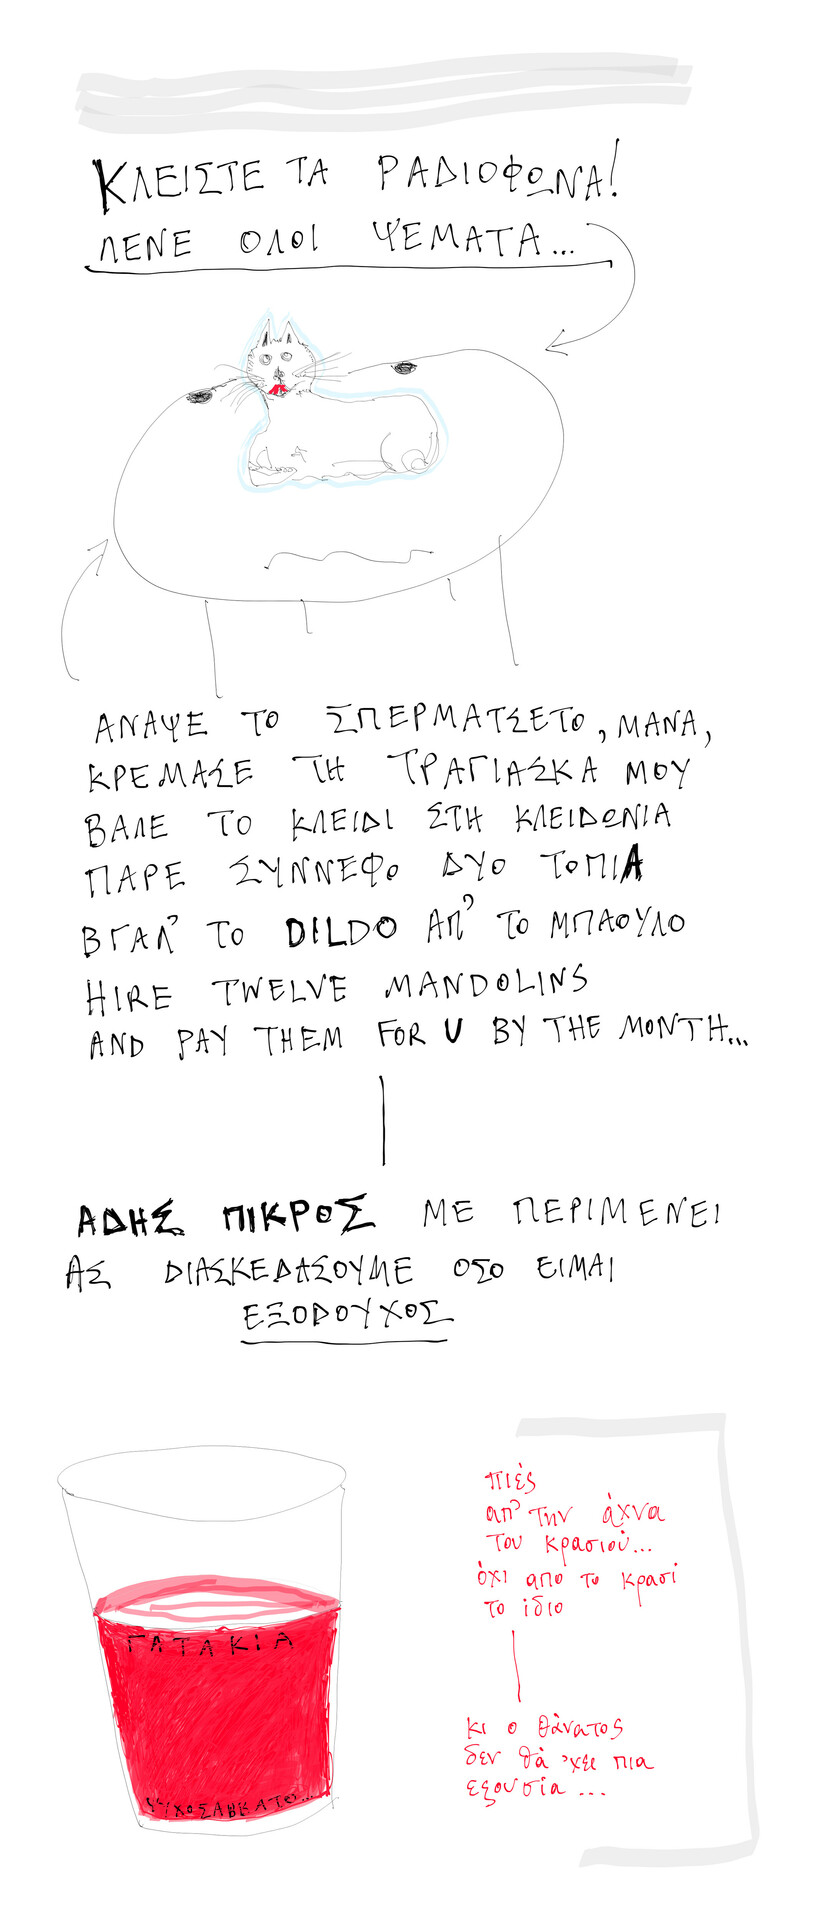 ΚΛΕΙΣΤΕ ΤΑ ΡΑΔΙΟΦΩΝΑ!
ΛΕΝΕ ΟΛΟΙ ΨΕΜΑΤΑ...
ΑΝΑΨΕ ΤΟ ΣΠΕΡΜΑΤΣΕΤΟ, ΜΑΝΑ,
ΚΡΕΜΑΣΕ ΤΗ ΤΡΑΓΙΑΣΚΑ ΜΟΥ
ΒΑΛΕ ΤΟ ΚΛΕΙΔΙ ΣΤΗ ΚΛΕΙΔΩΝΙΑ
ΠΑΡΕ ΣΥΝΝΕΦΟ ΔΥΟ ΤΟΠΙΑ
ΒΓΑΛ' ΤΟ DILDO ΑΠ' ΤΟ ΜΠΑΟΥΛΟ
HIRE TWELVE MANDOLINS
AND PAY THEM FOR U BY THE MONTH...
ΑΔΗΣ ΠΙΚΡΟΣ ΜΕ ΠΕΡΙΜΕΝΕΙ
ΑΣ ΔΙΑΣΚΕΔΑΣΟΥΜΕ ΟΣΟ ΕΙΜΑΙ
ΕΞΟΔΟΥΧΟΣ
ΓΑΤΑΚΙΑ
ΨΥΧΟΣΑΒΒΑΤΟ...
πιές
απ' την άχνα
του κρασιού...
όχι απο το κρασί
το ίδιο
κι ο θάνατος
δεν θά 'χει πια
εξουσία...